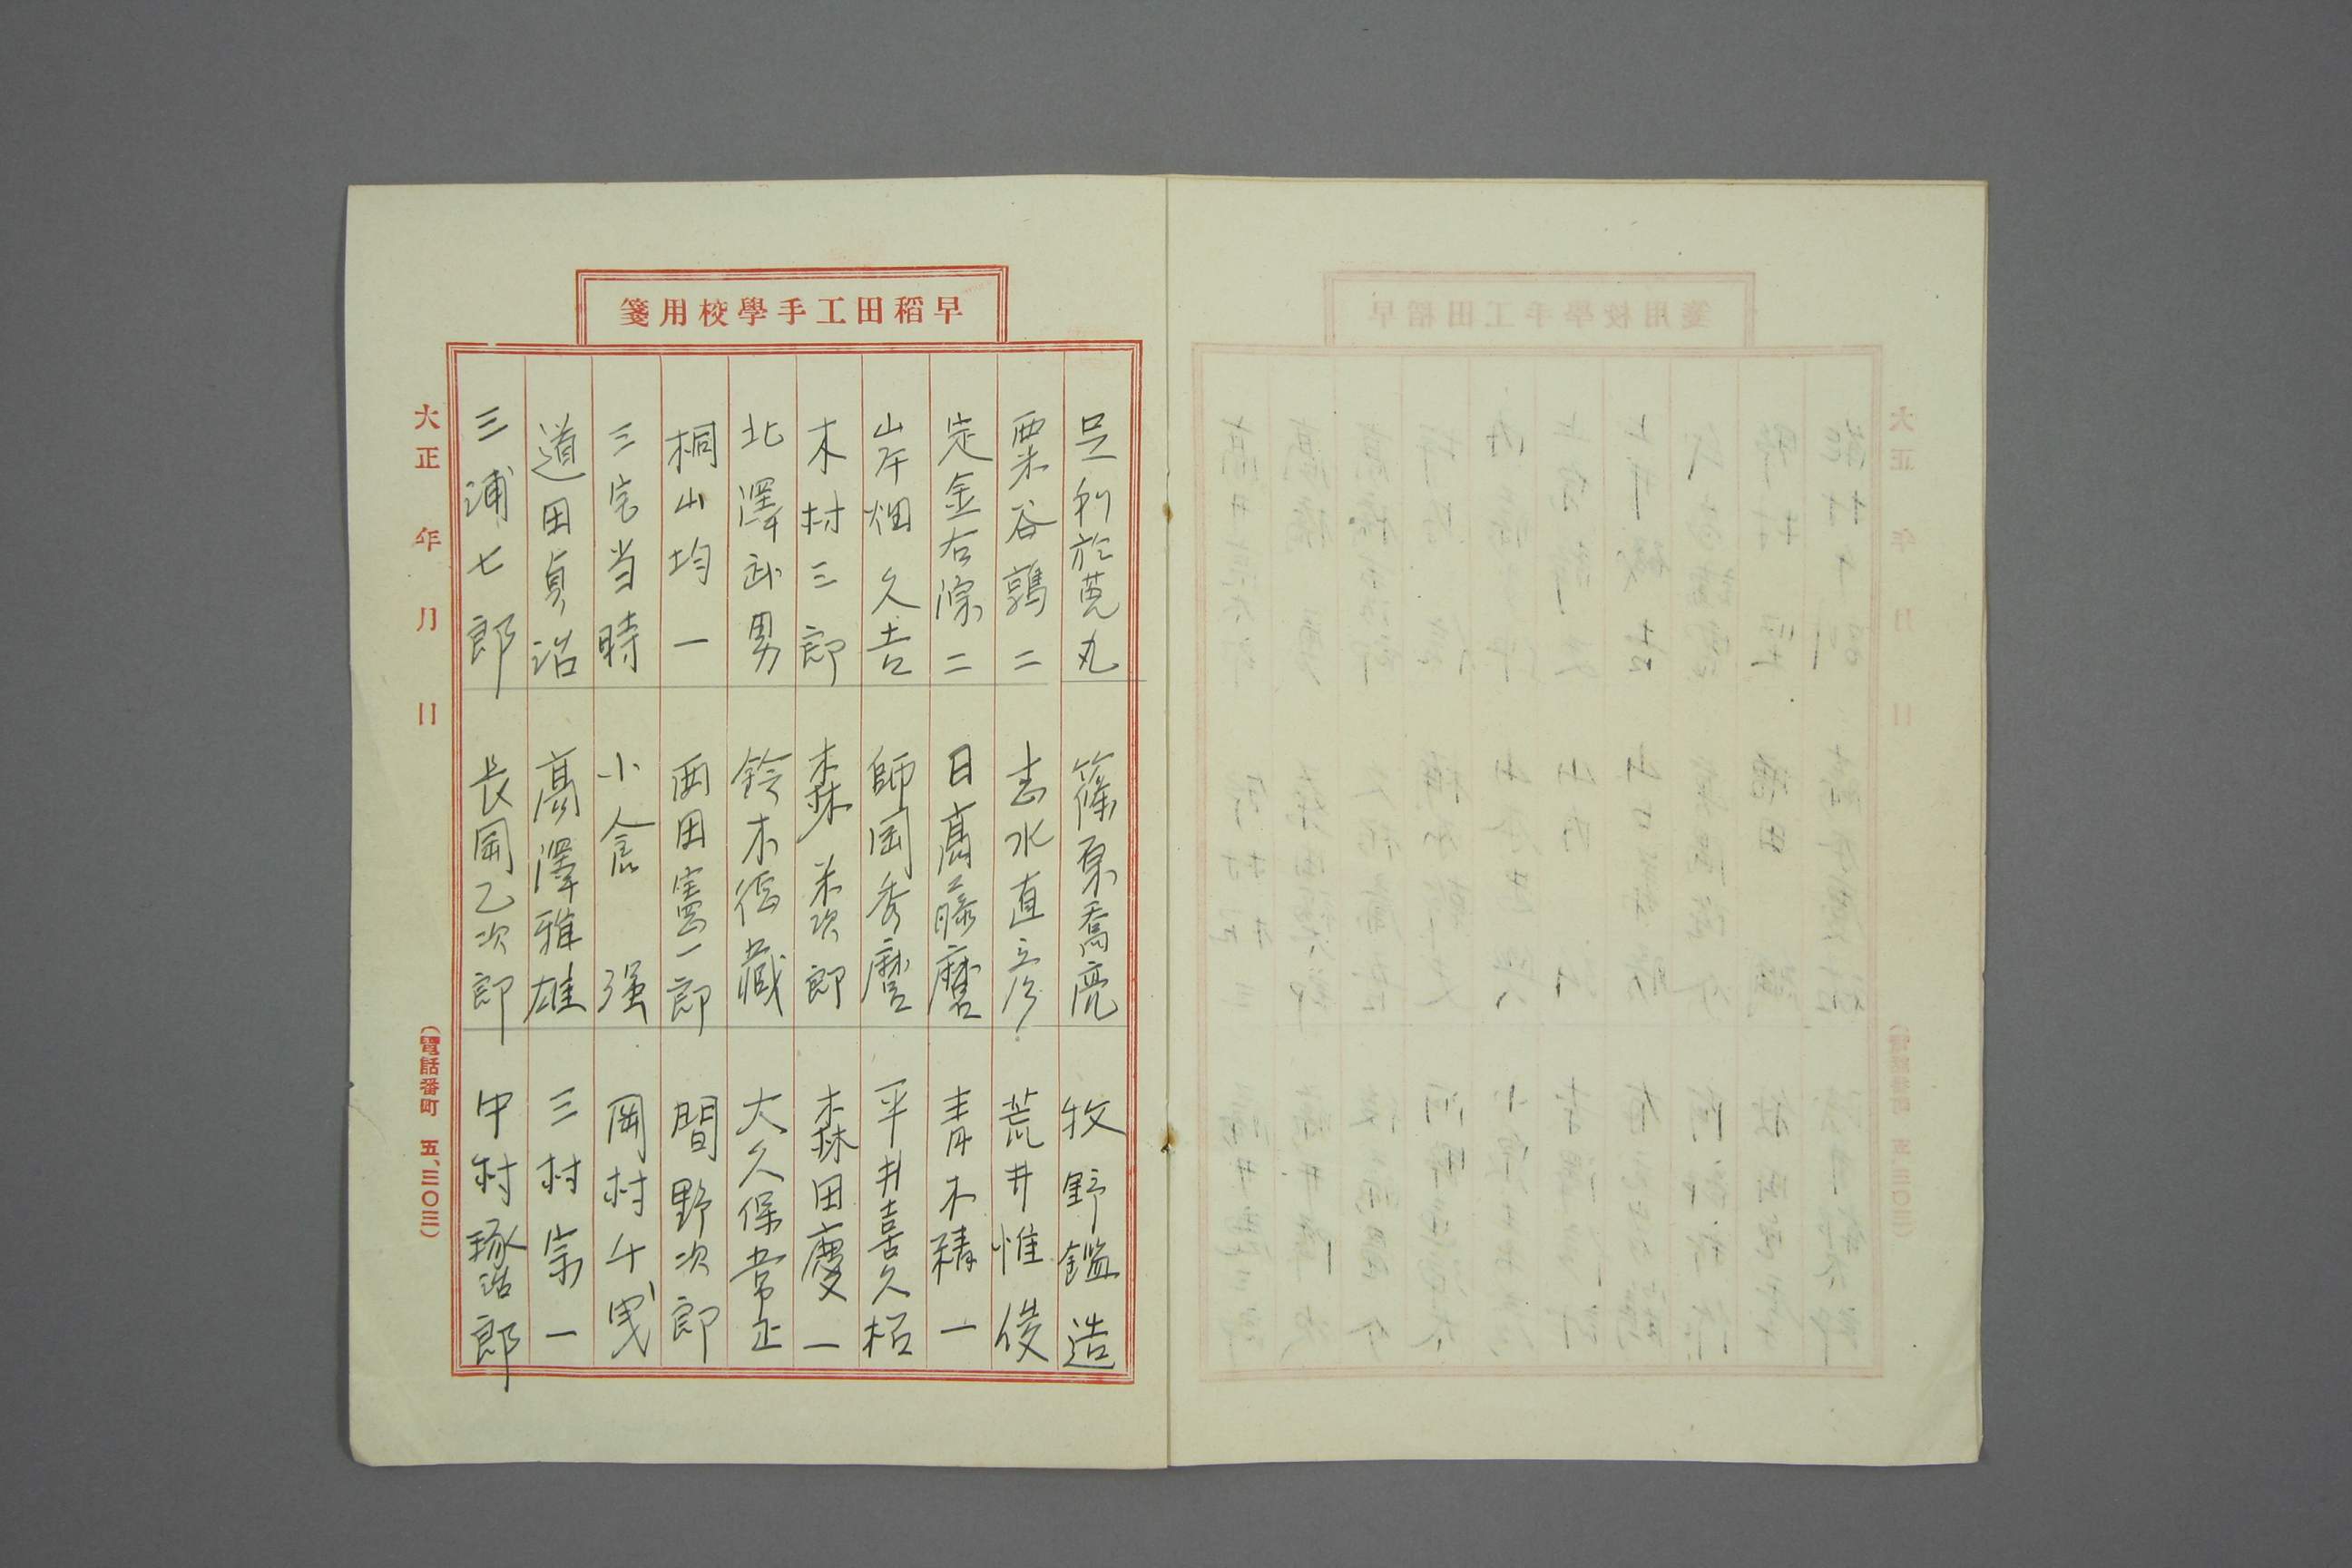 早稻田工手學校用箋
足利於菟丸 篠原喬亮 牧野鑑造
粟谷鶉二 志水直彦 荒井惟俊
定金右源二 日髙藤麿 青木精一
岸畑久吉 師岡秀麿 平井喜久松
木村三郎 森米次郎 森田慶一
北澤武男 鈴木德藏 大久保常正
桐山均一 西田憲一郎 間野次郎
三宅当時 小倉強 岡村千曳
道田貞治 髙澤雅雄 三村宗一
三浦七郎 長岡乙次郎 中村琢治郎
大正 年 月 日 （電話番町 五、三〇三）